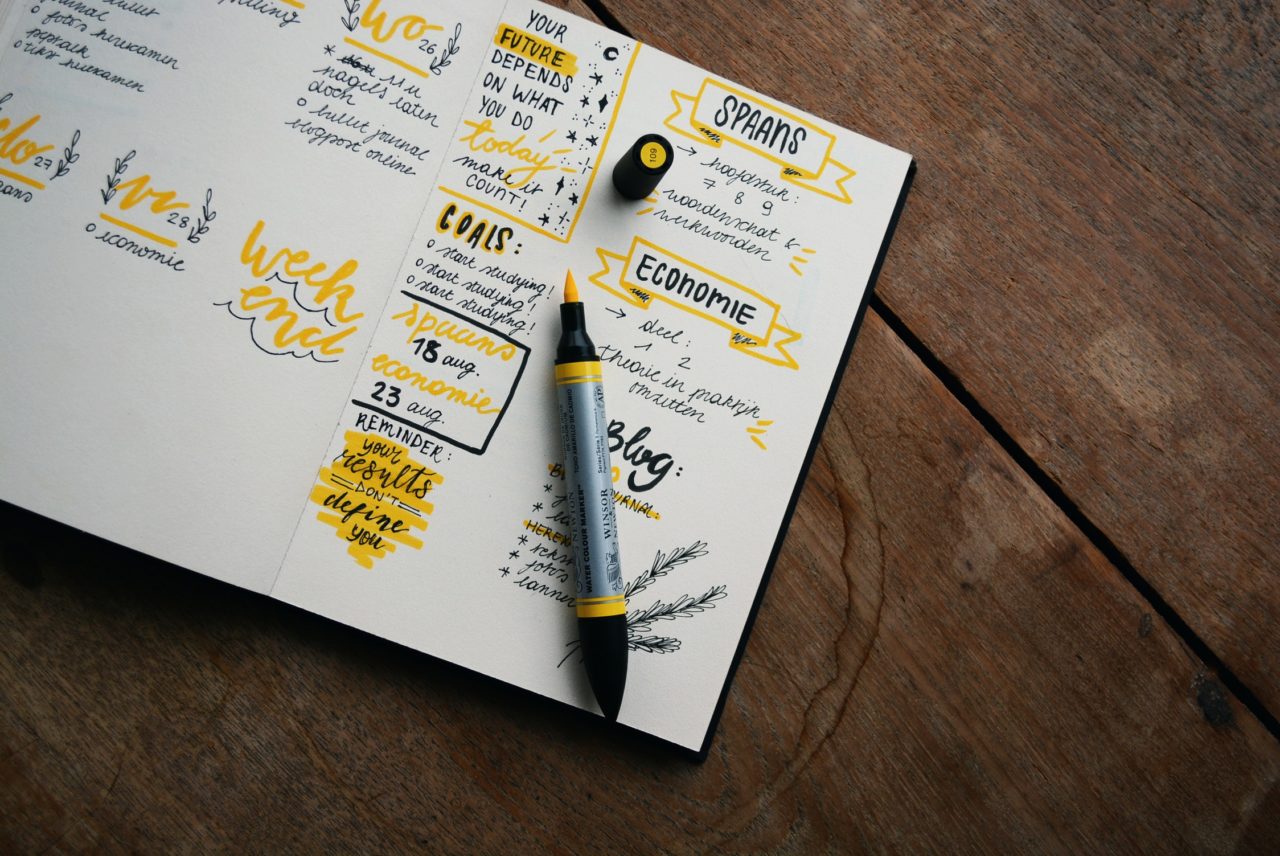 bullet
journal
o foto's herexamen
peptalk
o tekst herexamen
wo
26
* 11 u
nagels laten
doen
o bullet journal
blogpost online
do
27
vr
28
o economie
week
end
YOUR
FUTURE
DEPENDS
ON WHAT
YOU DO
today
make it
COUNT!
GOALS:
o start studying!
o start studying!
o start studying!
spaans
18 aug.
economie
23 aug.
REMINDER:
your
results
DON'T
define
you
SPAANS
→ hoofdstuk:
7 8 9
woordenschat &
werkwoorden
ECONOMIE
→ deel:
1 2
theorie in praktijk
omzetten
Blog:
* tekst
* foto's
109
WATER COLOUR MARKER™
WINSOR
NEWTON